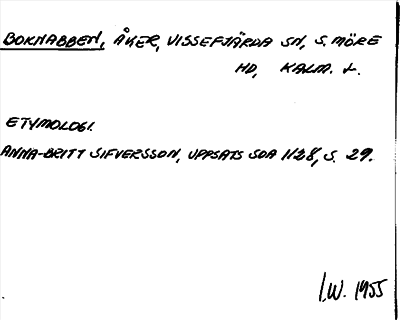 BOKNABBEN, ÅKER, VISSEFJÄRDA SN, S. MÖRE
HD, KALM. L.
ETYMOLOGI.
ANNA-BRITT SIFVERSSON, UPPSATS SOA 1128, S. 29.
I.W. 1955